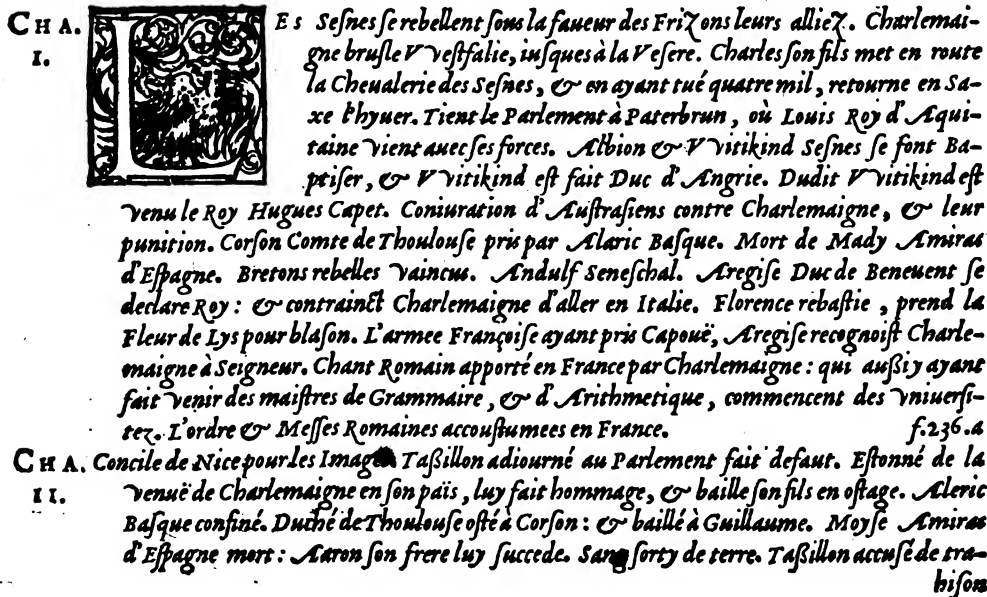 CHA. LEs Seſnes ſe rebellent ſous la faueur des Frizons leurs alliez. Charlemai-
I. gne bruſle VVeſtfalie, iuſques à la Veſere. Charles ſon fils met en route
la Cheualerie des Seſnes, & en ayant tué quatre mil, retourne en Sa-
xe l'hyuer. Tient le Parlement à Paterbrun, où Louis Roy d'Aqui-
taine vient auec ſes forces. Albion & VVitikind Seſnes ſe font Ba-
ptiſer, & VVitikind eſt fait Duc d'Angrie. Dudit VVitikind eſt
venu le Roy Hugues Capet. Coniuration d'Auſtraſiens contre Charlemaigne, & leur
punition. Corſon Comte de Thoulouſe pris par Alaric Baſque. Mort de Mady Amiras
d'Eſpagne. Bretons rebelles vaincus. Andulf Seneſchal. Aregiſe Duc de Beneuent ſe
declare Roy: & contrainct Charlemaigne d'aller en Italie. Florence rebaſtie, prend la
Fleur de Lys pour blaſon. L'armee Françoiſe ayant pris Capouë, Aregiſe recognoiſt Charle-
maigne à Seigneur. Chant Romain apporté en France par Charlemaigne: qui auſſi y ayant
fait venir des maiſtres de Grammaire, & d'Arithmetique, commencent des vniuerſi-
tez. L'ordre & Meſſes Romaines accouſtumees en France. f.236.a
CHA. Concile de Nice pour les Images Taſſillon adiourné au Parlement fait defaut. Eſtonné de la
II. venuë de Charlemaigne en ſon païs, luy fait hommage, & baille ſon fils en oſtage. Aleric
Baſque confiné. Duché de Thoulouſe oſté à Corſon: & baillé à Guillaume. Moyſe Amiras
d'Eſpagne mort: Aaron ſon frere luy ſuccede. Sang ſorty de terre. Taſſillon accuſé de tra-
hiſon